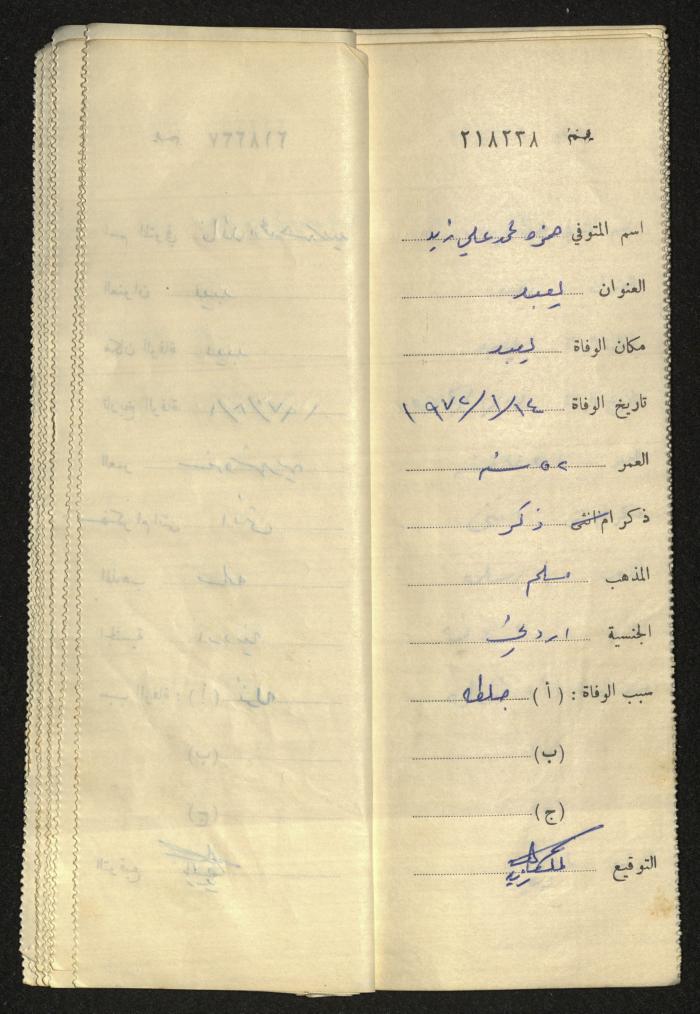 نمرة ٢١٨٢٣٨
اسم المتوفي حمزه محمد علي زيد
العنوان يعبد
مكان الوفاة يعبد
تاريخ الوفاة ١٩٧٢/١/١٤
العمر ٥٢ سنه
ذكر ام انثى ذكر
المذهب مسلم
الجنسية اردني
سبب الوفاة : (أ) جلطه
(ب)
(ج)
التوقيع